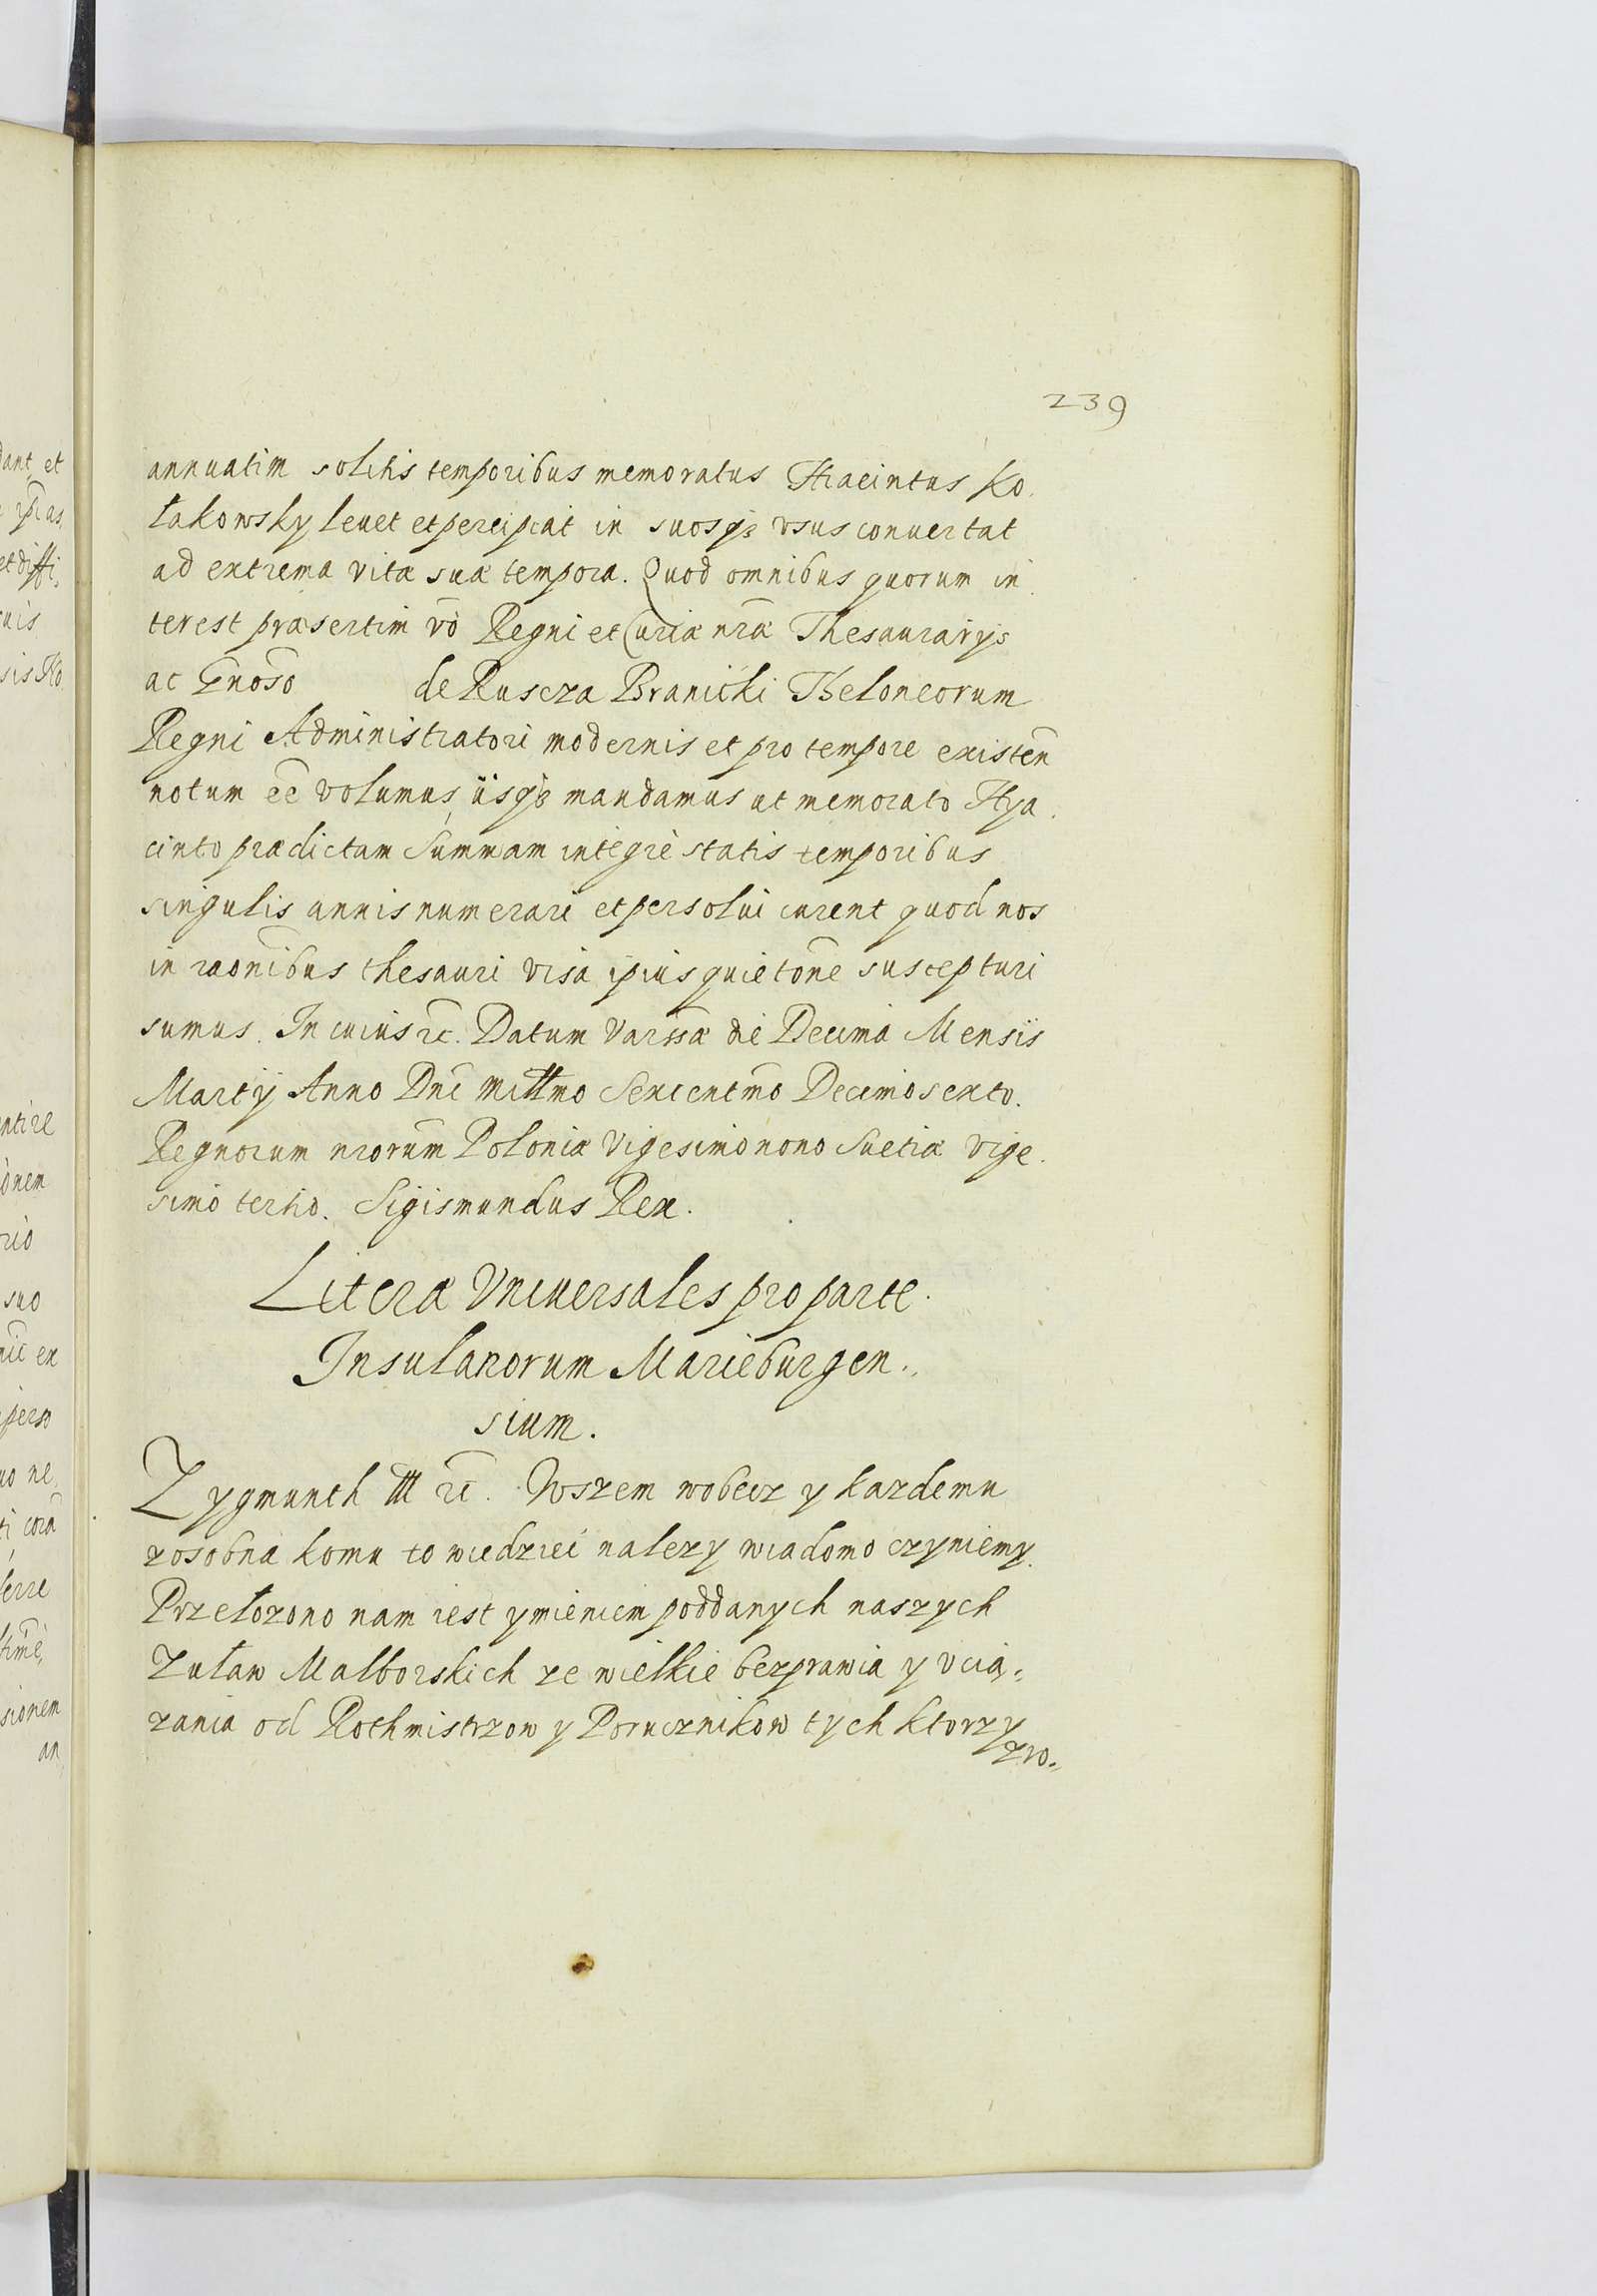 239
annuatim solitis temporibus memoratus Hiacintus Ko
łakowsky leuet et percipiat in suosq3 vsus conuertat
ad extrema vitæ suæ tempora. Quod omnibus quorum in
terest præsertim vo᷃ Regni et Curiæ nr᷃æ Thesaurarijs
ac G᷃noso᷃ de Ruscza Branicki Theloneorum
Regni Administratori modernis et pro tempore existen᷃
notum ee᷃ volumus, iisq3 mandamus ut memorato Hya
cinto prædictam Summam integrè statis temporibus
singulis annis numerari et persolui curent quod nos
in rao᷃nibus thesauri visa ipius quieto᷃ne suscepturi
sumus. In cuius rc᷃. Datum Varssæ die Decima Mensis
Martij Anno Dni᷃ Millmo Sexcentmo᷃ Decimosexto.
Regnorum nrorum᷃ Poloniæ Vigesimonono Suetiæ vige
simo tertio. Sigismundus Rex.
Literæ Vniuersales pro parte
Insulanorum Marieburgen
sium.
Zygmunth III rc᷃. Wszem wobecz y kazdemu
zosobna komu to wiedziec nalezy wiadomo czyniemy.
Przełozono nam iest ymieniem poddanych naszych
Zuław Malborskich ze wielkie bezprawia y vcią=
zania od Rothmistrzow y Porucznikow tych ktorzy
zwo=
dant et
ipi᷃as,
et diffi,
suis
sis Ko
ntire
onem
rio
suo
ex
perso
uo ne
ti cora᷃
ferre
sionem
an